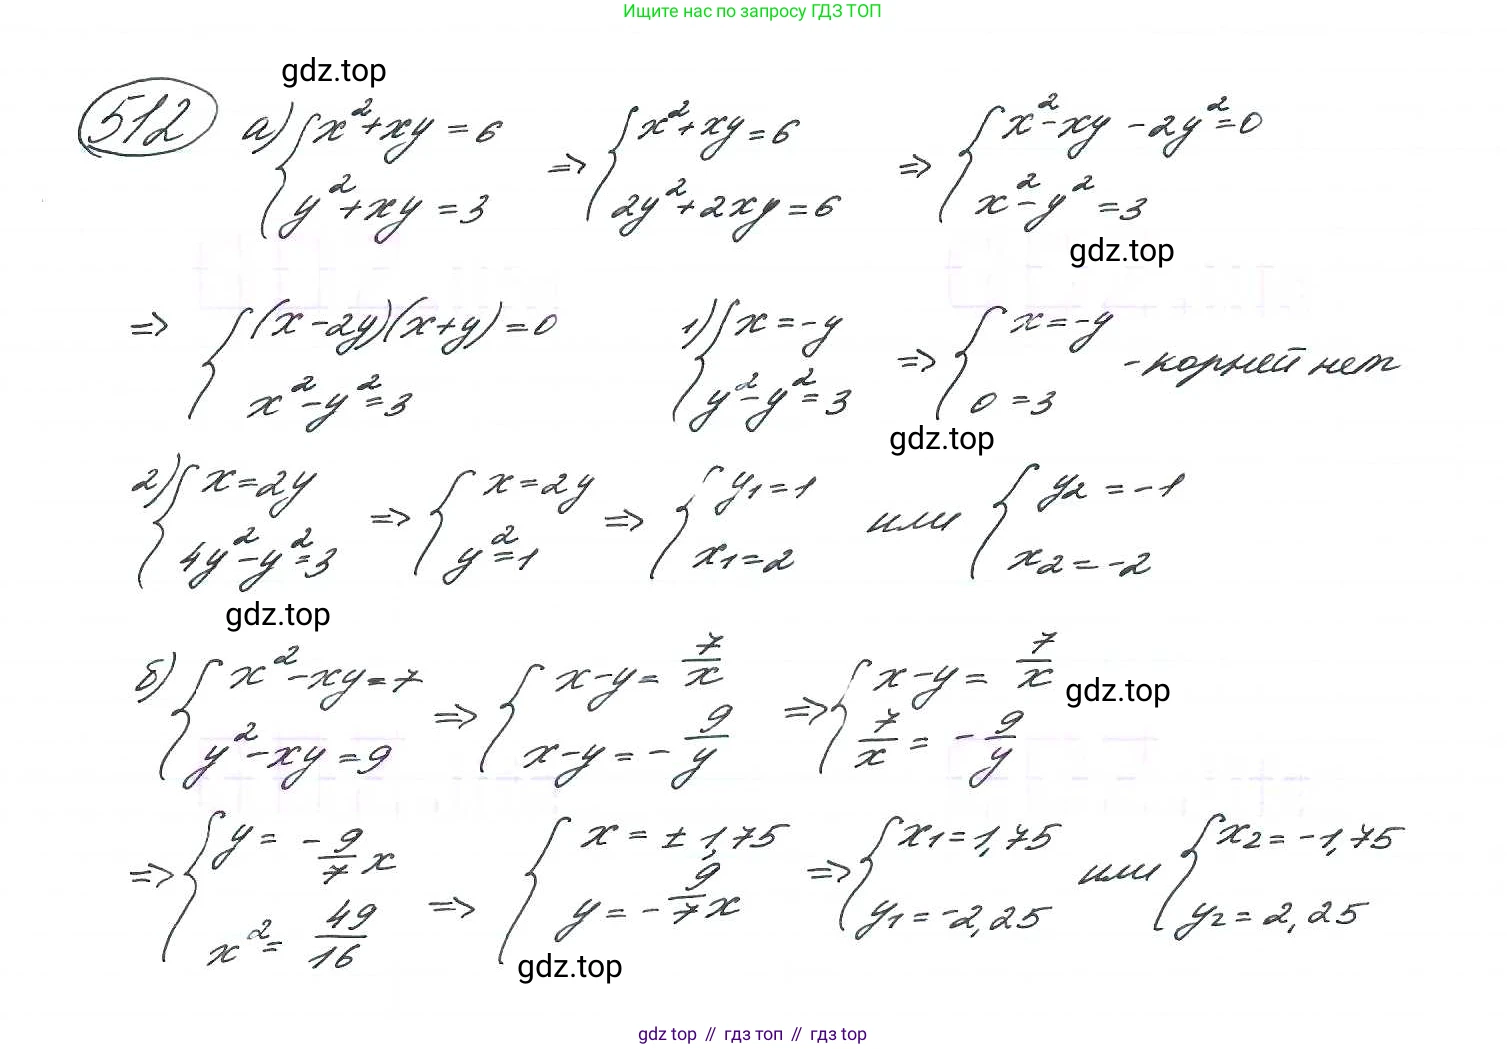 Ищите нас по запросу ГДЗ ТОП
gdz.top
512 а) { x² + xy = 6 ; y² + xy = 3 => { x² + xy = 6 ; 2y² + 2xy = 6 => { x² - xy - 2y² = 0 ; x² - y² = 3
gdz.top
=> { (x - 2y)(x + y) = 0 ; x² - y² = 3 1) { x = -y ; y² - y² = 3 => { x = -y ; 0 = 3 - корней нет
gdz.top
2) { x = 2y ; 4y² - y² = 3 => { x = 2y ; y² = 1 => { y1 = 1 ; x1 = 2 или { y2 = -1 ; x2 = -2
gdz.top
б) { x² - xy = 7 ; y² - xy = 9 => { x - y = 7/x ; x - y = - 9/y => { x - y = 7/x ; 7/x = - 9/y
gdz.top
=> { y = - 9/7 x ; x² = 49/16 => { x = ± 1,75 ; y = - 9/7 x => { x1 = 1,75 ; y1 = -2,25 или { x2 = -1,75 ; y2 = 2,25
gdz.top
gdz top // гдз топ // гдз top